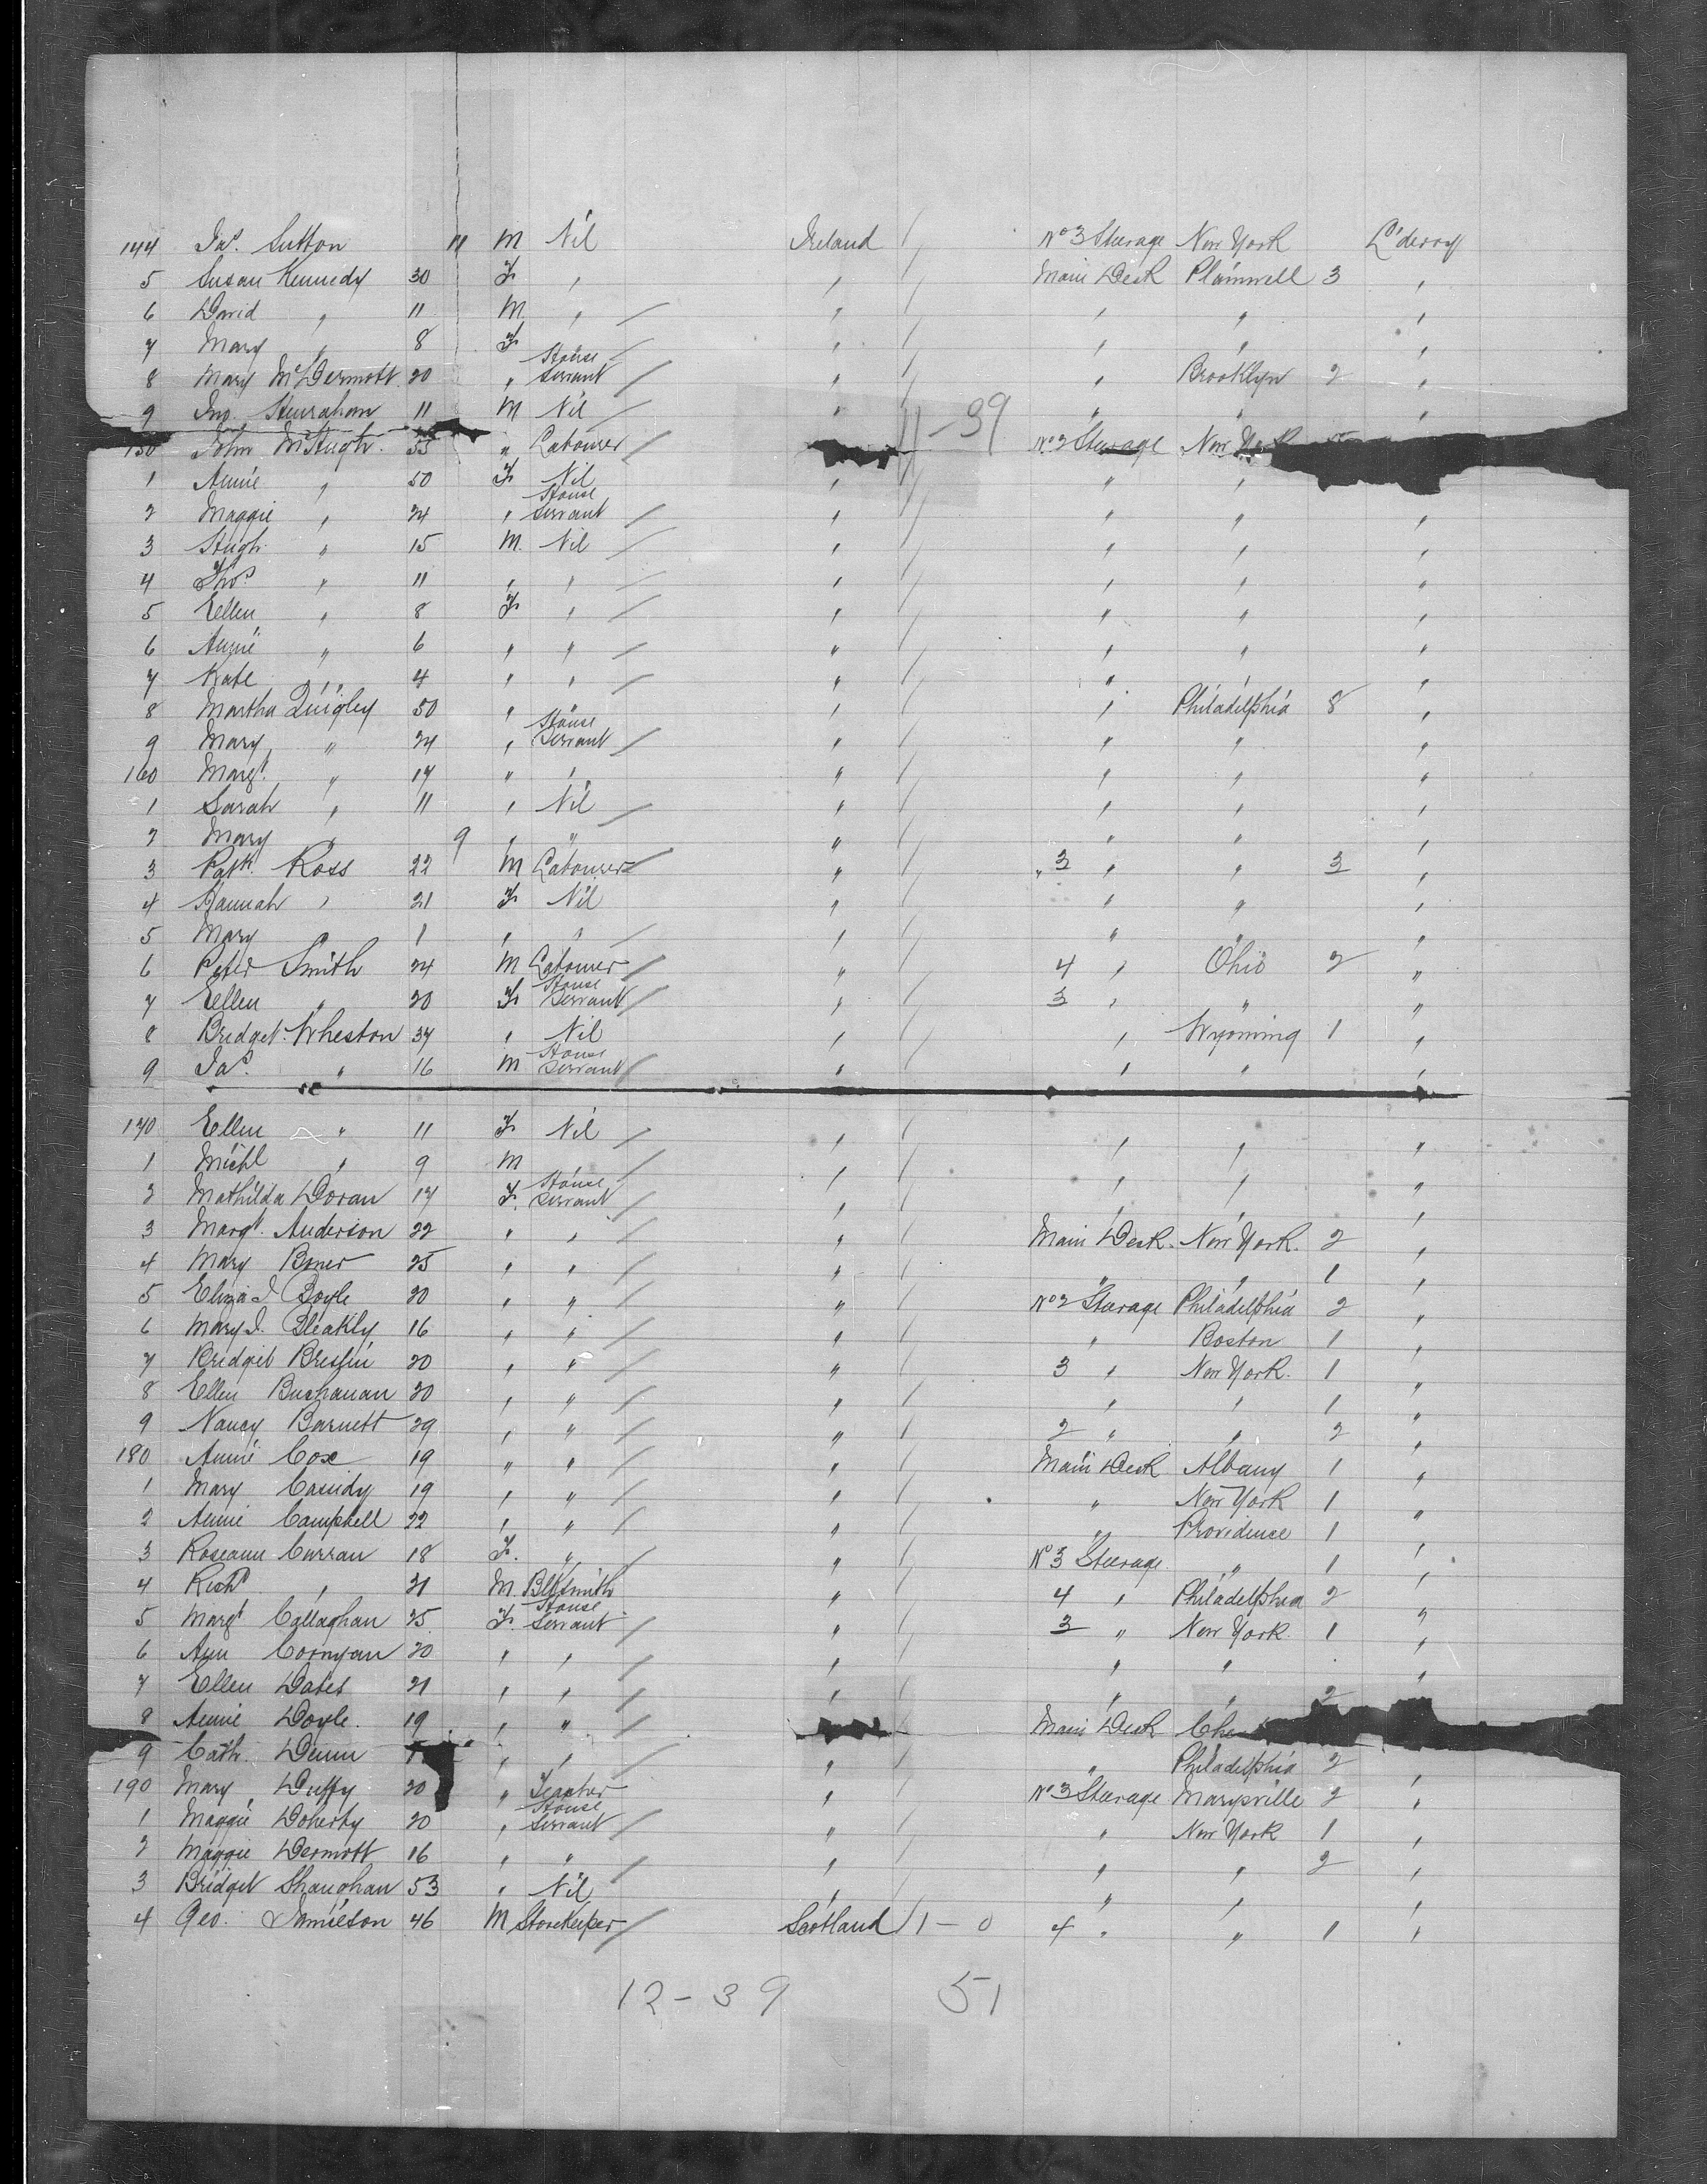 144 Jas. Sutton 11 M Nil Ireland No 3 Steerage New York L'derry
5 Susan Kennedy 30 F " " Main Deck Plainwell 3 "
6 David " 11 M " " " " "
7 Mary " 8 F " " " "
8 Mary McDermott 20 " House Servant " " Brooklyn 2 "
9 Jno. 11 M Nil " " " "
150 John McHugh 55 " Labourer No 2 Steerage New York
1 Annie " 50 F Nil " " "
2 Maggie " 24 " House Servant " " " "
3 Hugh " 15 M. Nil " " " "
4 Thos " 11 " " " " " "
5 Ellen " 8 F " " " " "
6 Annie " 6 " " " " " "
7 Kate " 4 " " " " " "
8 Martha Quigley 50 " " " " Philadelphia 8 "
9 Mary " 24 " House Servant " " " "
160 Margt. " 17 " " " " " "
1 Sarah " 11 " Nil " " " "
2 Mary " 9 " " " " " "
3 Patk. Ross 22 M Labourer " " 3 " " 3 "
4 Hannah " 21 F Nil " " " "
5 Mary " 1 " " " " " "
6 Peter Smith 24 M Labourer " 4 " Ohio 2 "
7 Ellen " 20 F House Servant " 3 " " "
8 Bridget Wheston 37 " Nil " " Wyoming 1 "
9 Jas. " 16 M House Servant " " " "
170 Ellen " 11 F Nil " " " "
1 Michl " 9 M " " " "
2 Mathilda Doran 17 F. House Servant " " " "
3 Margt. Anderson 22 " " " Main Deck. New York. 2 "
4 Mary Boner 25 " " " " " 1 "
5 Eliza J. Boyle 20 " " " No 2 Steerage Philadelphia 2 "
6 Mary J. Bleakly 16 " " " " Boston 1 "
7 Bridget Breslin 20 " " " 3 " New York. 1 "
8 Ellen Buchanan 20 " " " " " 1 "
9 Nancy Barnett 29 " " " 2 " " 2 "
180 Annie Cox 19 " " " Main Deck Albany 1 "
1 Mary Cassidy 19 " " " " New York 1 "
2 Annie Campbell 22 " " " " Providence 1 "
3 Roseann Curran 18 F. " " No 3 Steerage " 1 "
4 Richd " 21 M. Blksmith " 4 " Philadelphia 2 "
5 Margt Callaghan 25 F. House Servant " 3 " New York. 1 "
6 Ann Cornyan 20 " " " " " "
7 Ellen 21 " " " " " 2
8 Annie Doyle. 19 " " Main Deck
9 Cath. Dunn " " " " Philadelphia 2 "
190 Mary Duffy 20 " Teacher " No 3 Steerage Marysville 2 "
1 Maggie Doherty 20 " House Servant " " New York 1 "
2 Maggie Dermott 16 " " " " " 2 "
3 Bridget Shaughan 53 " Nil " " " "
4 Geo. Jamieson 46 M Storekeeper Scotland 1 - 0 4 " " 1 "
11 - 39
12 - 39 51